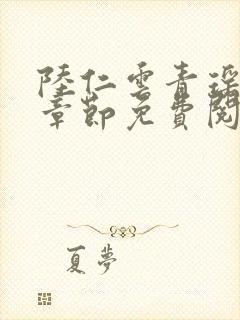 陸仁雲青瑤
章節免費閱
夏夢